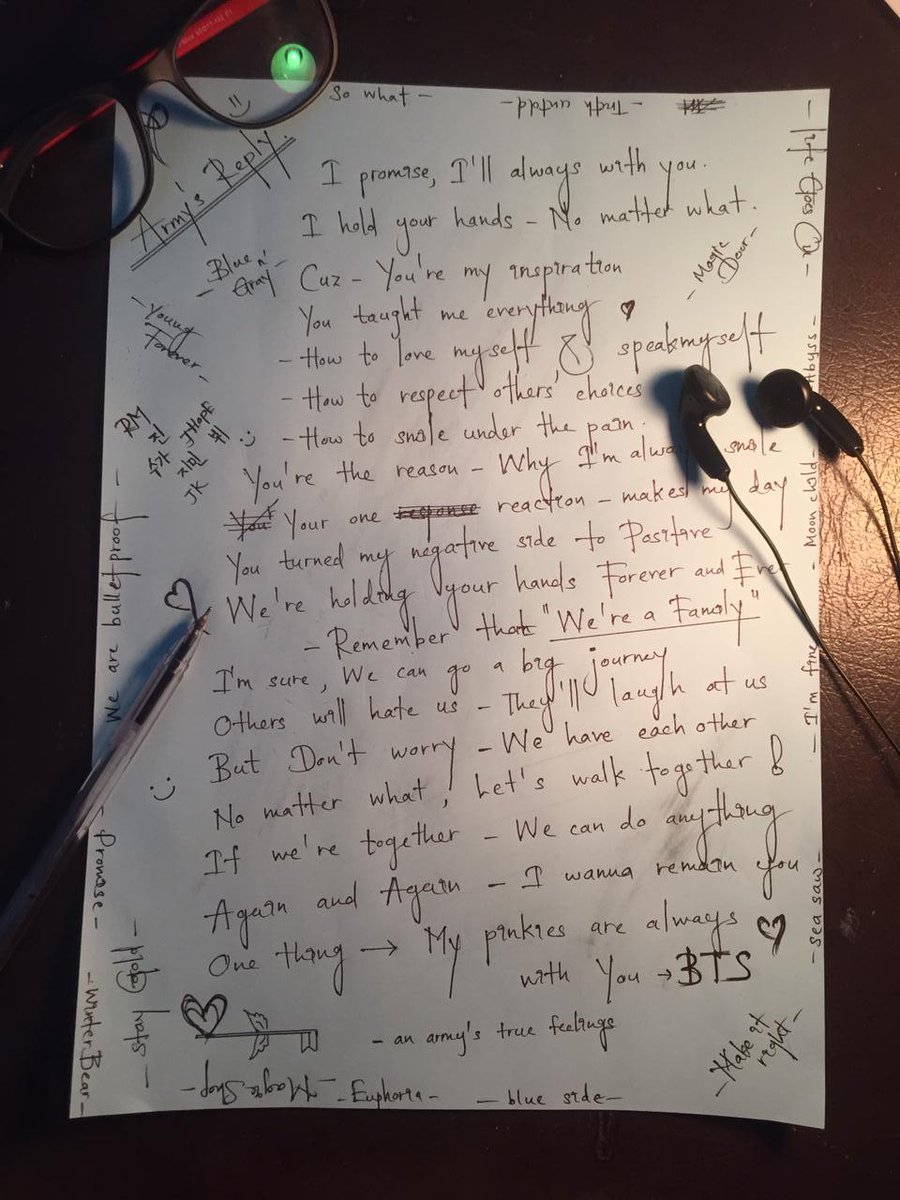 So what -
- Truth untold -
- Life Goes On -
Army's Reply.
I promise, I'll always with you.
I hold your hands - No matter what.
- Blue n' Gray -
- Magic Door -
Cuz - You're my inspiration
You taught me everything
- Young Forever -
- How to love myself & speakmyself
- How to respect others' choices
- How to smile under the pain.
RM
진
슈가 JHope
지민 뷔
JK
You're the reason - Why I'm always smile
You Your one response reaction - makes my day
You turned my negative side to Positive
We're holding your hands Forever and Ever
- Remember that "We're a Family"
I'm sure, We can go a big journey
Others will hate us - They'll laugh at us
But Don't worry - We have each other
No matter what, Let's walk together!
If we're together - We can do anything
Again and Again - I wanna remain you
One thing → My pinkies are always
with You → BTS
- an army's true feelings
We are bulletproof -
- Promise -
- Winter Bear -
- Stay Gold -
- Magic Shop -
- Euphoria -
- blue side -
- Make it right -
- Sea saw -
- I'm fine -
Moon child -
Abyss -